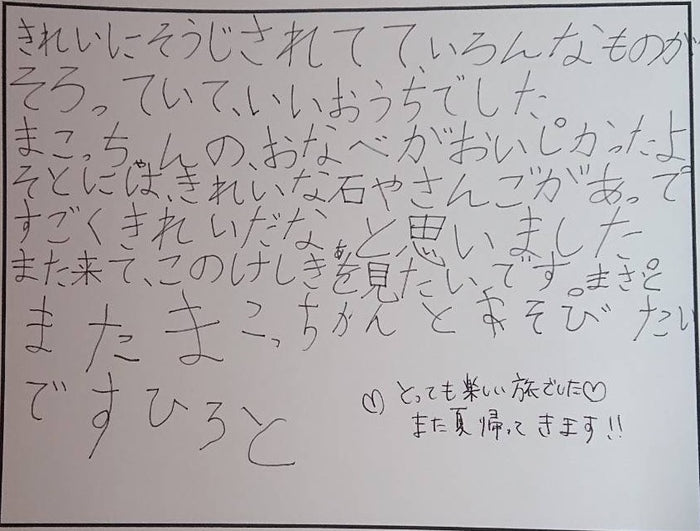 きれいにそうじされてて、いろんなものが
そろっていて、いいおうちでした
まこっちゃんの、おなべがおいしかったよ
そとには、きれいな石やさんごがあって
すごくきれいだな、と思いました
また来て、このけしきを見たい、です。まさと
またまこっちゃんとあそびたい
ですひろと
♡とっても楽しい旅でした♡
また夏帰ってきます!!